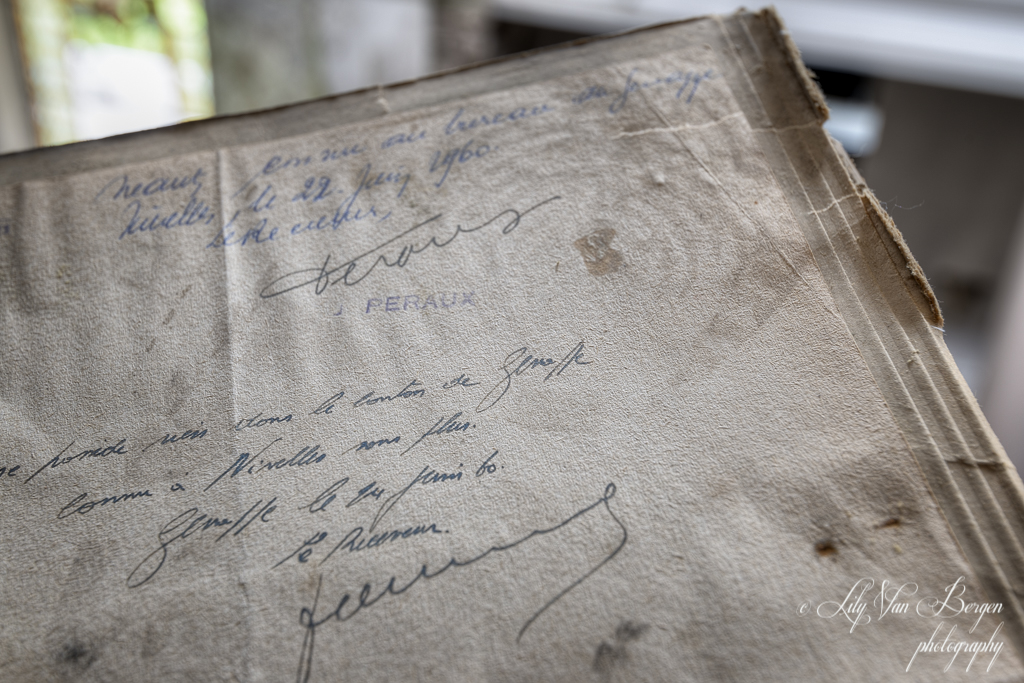 Néant, connu au bureau de
Nivelles, le 22 Juin 1960.
Peraux
PERAUX
ne possède rien dans le canton de Genappe
connu à Nivelles non plus.
Genappe le 24 juin 60.
Le Receveur.
© Lily Van Bergen
photography